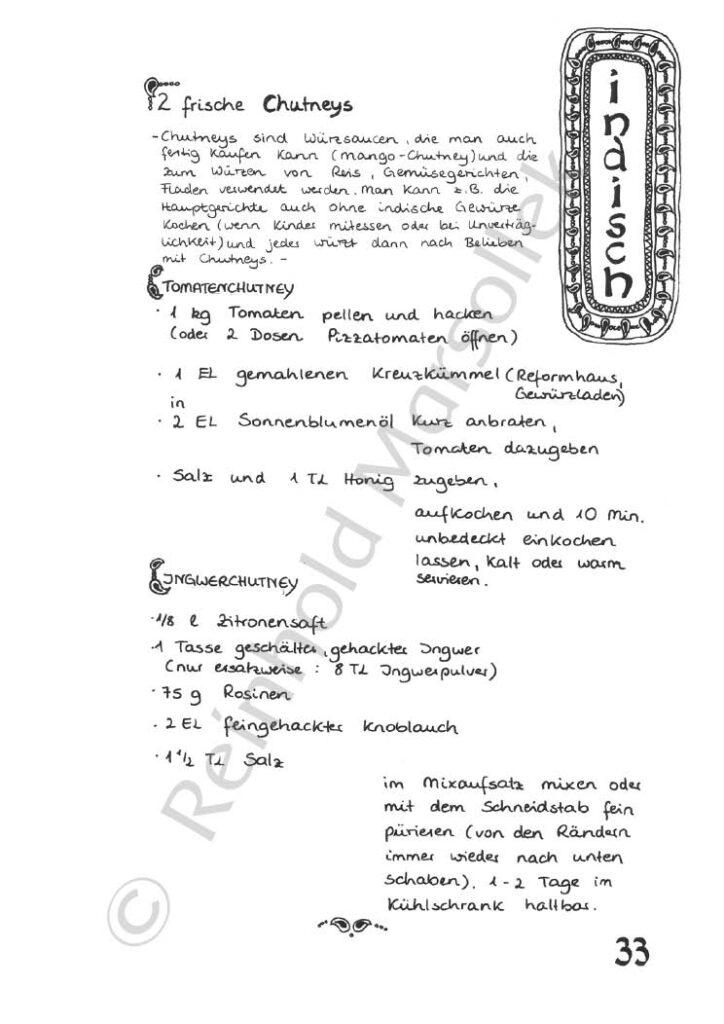 2 frische Chutneys
indisch
-Chutneys sind Würzsaucen, die man auch
fertig kaufen kann (mango-Chutney) und die
zum Würzen von Reis, Gemüsegerichten,
Fladen verwendet werden. Man kann z.B. die
Hauptgerichte auch ohne indische Gewürze
kochen (wenn Kinder mitessen oder bei Unverträg-
lichkeit) und jeder würzt dann nach Belieben
mit Chutneys. -
TOMATENCHUTNEY
· 1 kg Tomaten pellen und hacken
(oder 2 Dosen Pizzatomaten öffnen)
· 1 EL gemahlenen Kreuzkümmel (Reformhaus,
Gewürzladen)
in
· 2 EL Sonnenblumenöl kurz anbraten,
Tomaten dazugeben
· Salz und 1 TL Honig zugeben,
aufkochen und 10 Min.
unbedeckt einkochen
lassen, kalt oder warm
servieren.
INGWERCHUTNEY
· 1/8 l Zitronensaft
· 1 Tasse geschälter, gehackter Ingwer
(nur ersatzweise : 8 TL Ingwerpulver)
· 75 g Rosinen
· 2 EL feingehackter Knoblauch
· 1 1/2 TL Salz
im Mixaufsatz mixen oder
mit dem Schneidstab fein
pürieren (von den Rändern
immer wieder nach unten
schaben). 1-2 Tage im
Kühlschrank haltbar.
33
© Reinhold Marsollek